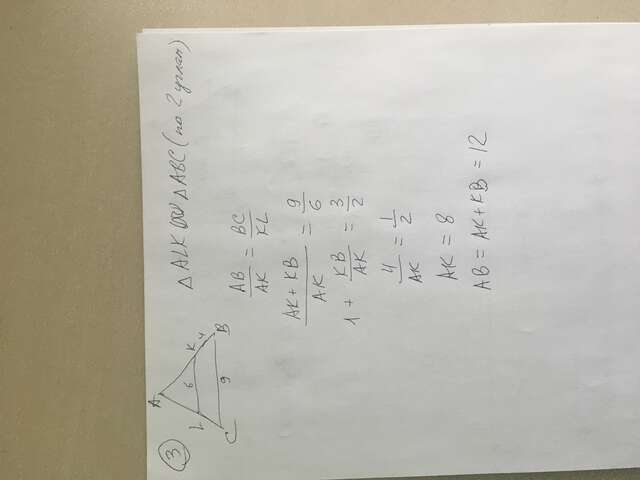 3
A
L
K
6
4
C
9
B
△ALK ∞ △ABC (по 2 углам)
AB/AK = BC/KL
AK + KB/AK = 9/6
1 + KB/AK = 3/2
4/AK = 1/2
AK = 8
AB = AK + KB = 12